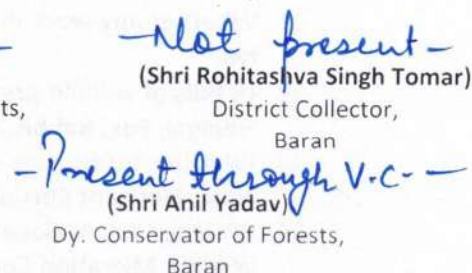 -Not present-
(Shri Rohitashva Singh Tomar)
ts,
District Collector,
Baran
-Present through V.C.-
(Shri Anil Yadav)
Dy. Conservator of Forests,
Baran